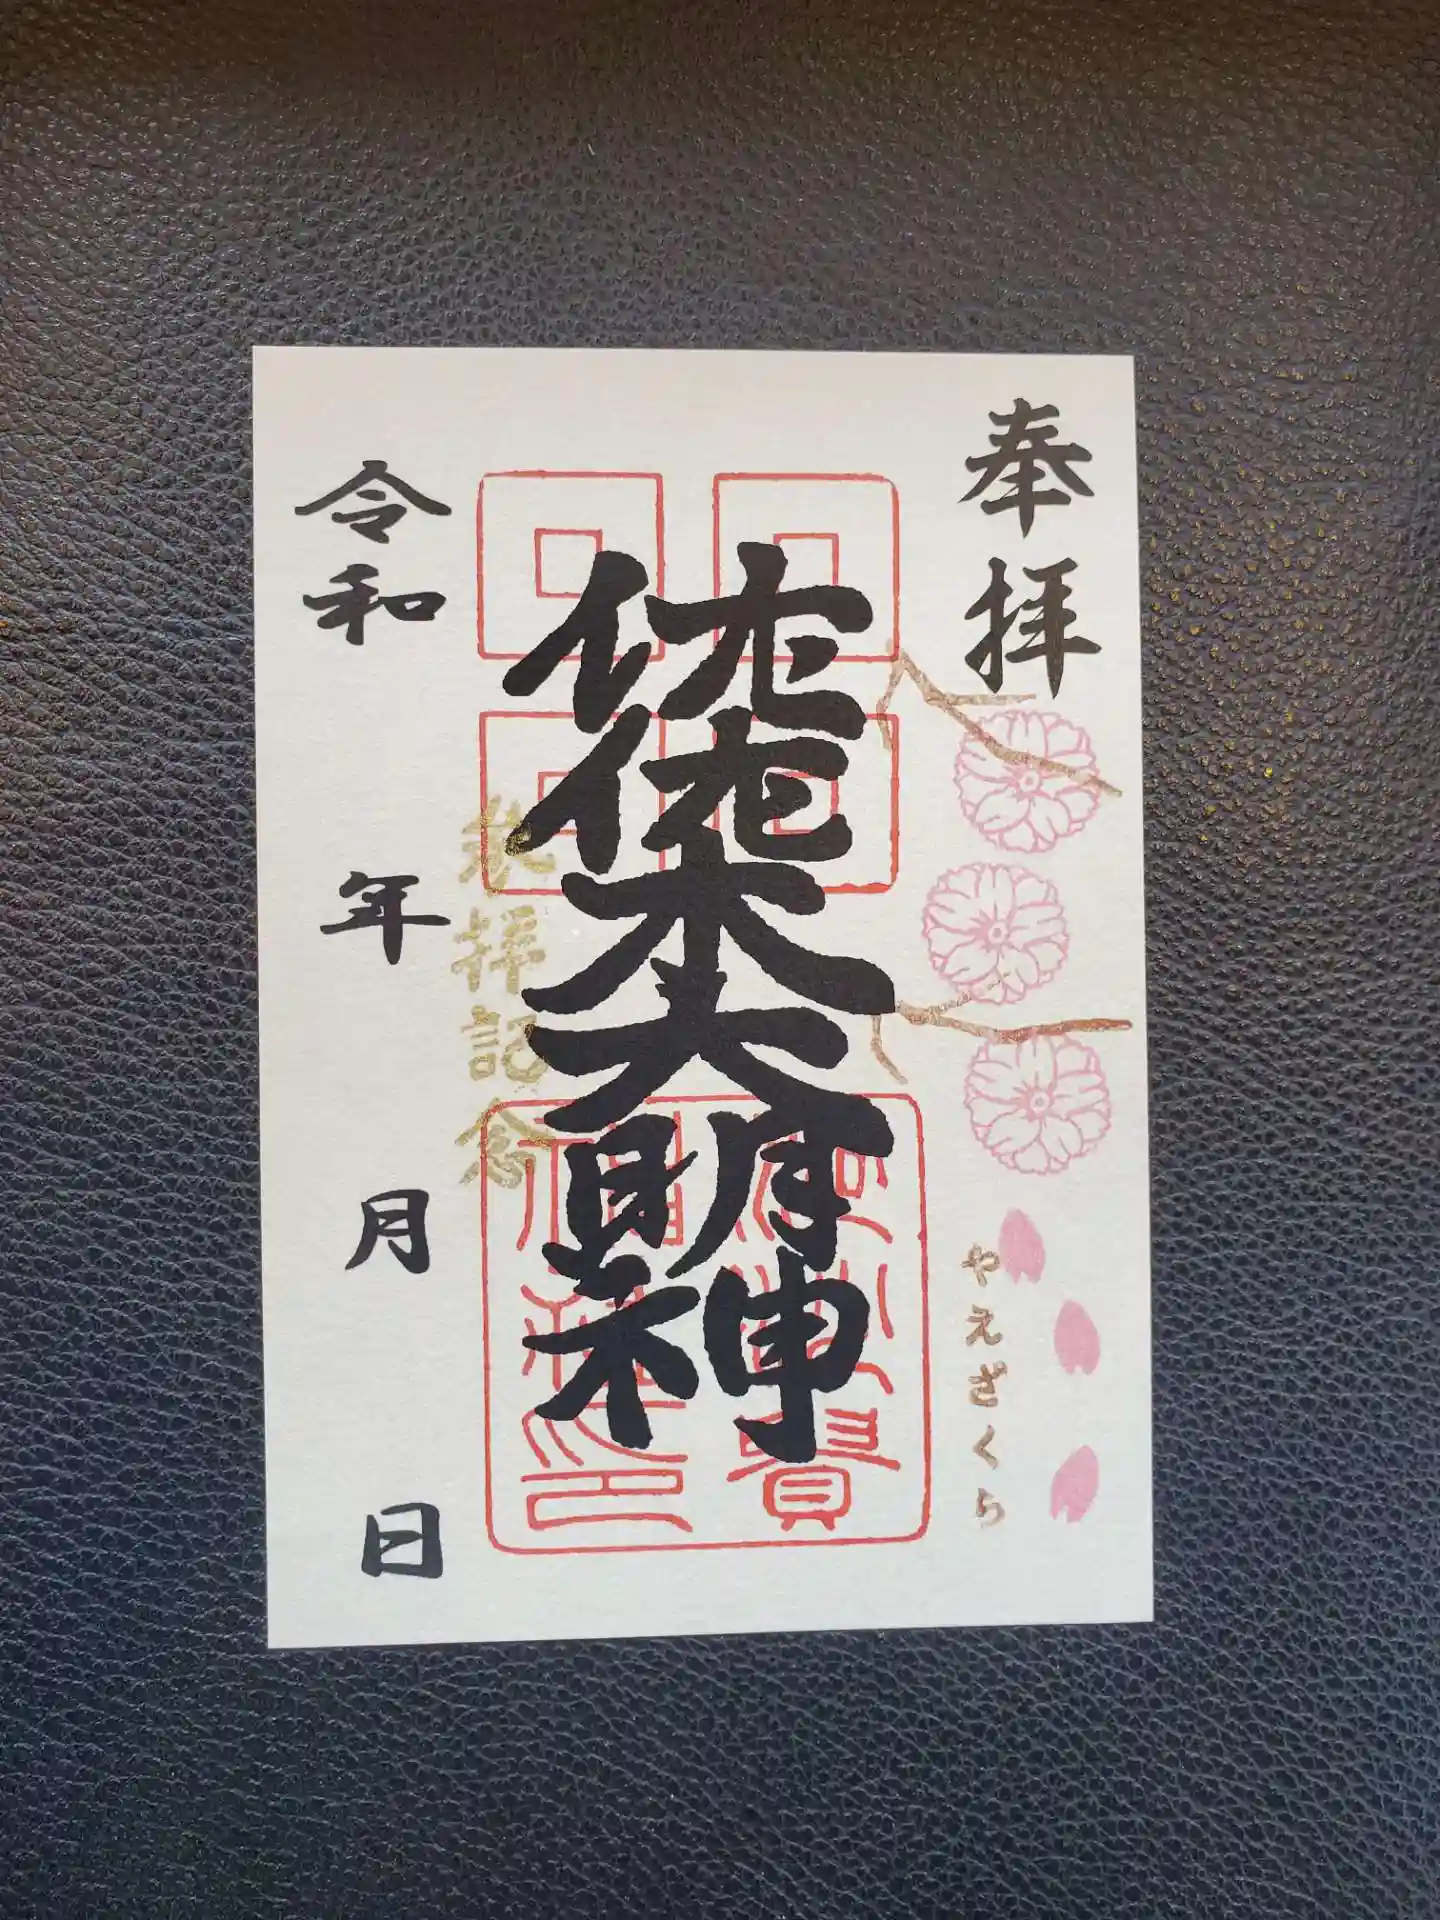 奉拝
やえざくら
佐佐木大明神
参拝記念
令和 年 月 日